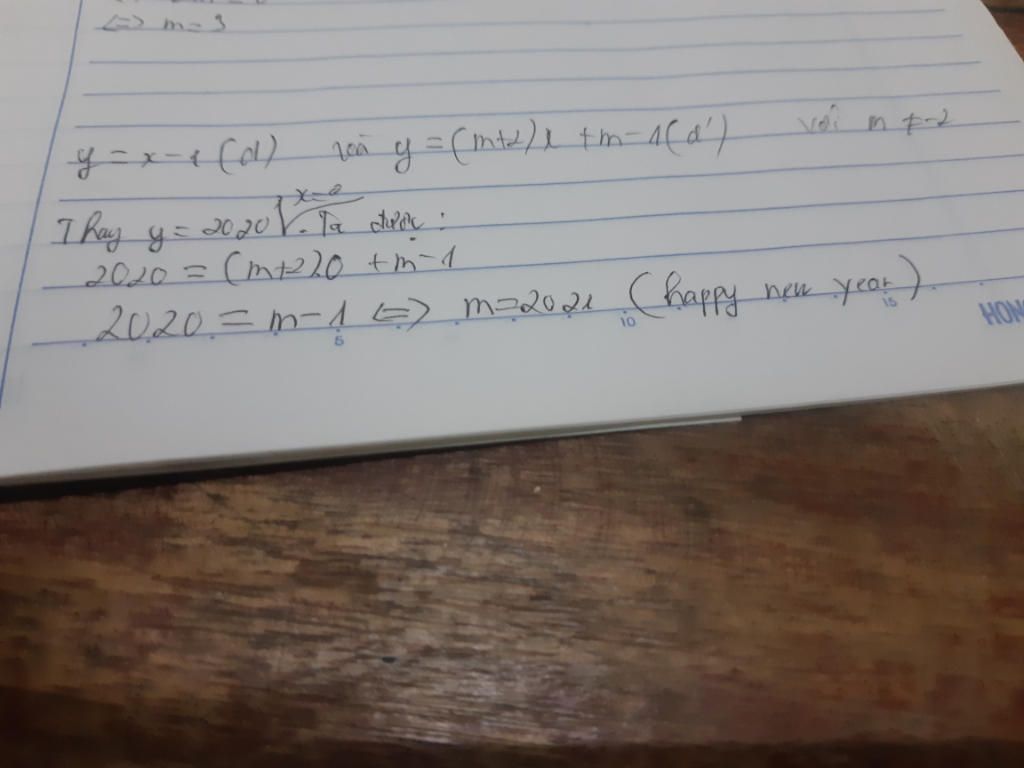 <=> m = 3
y = x - 1 (d) và y = (m+2)x + m - 1 (d') với m ≠ -2
Thay y = 2020 √ x=0 . Ta được :
2020 = (m+2)0 + m - 1
2020 = m - 1 <=> m = 2021 (happy new year)
5 10 15
HON